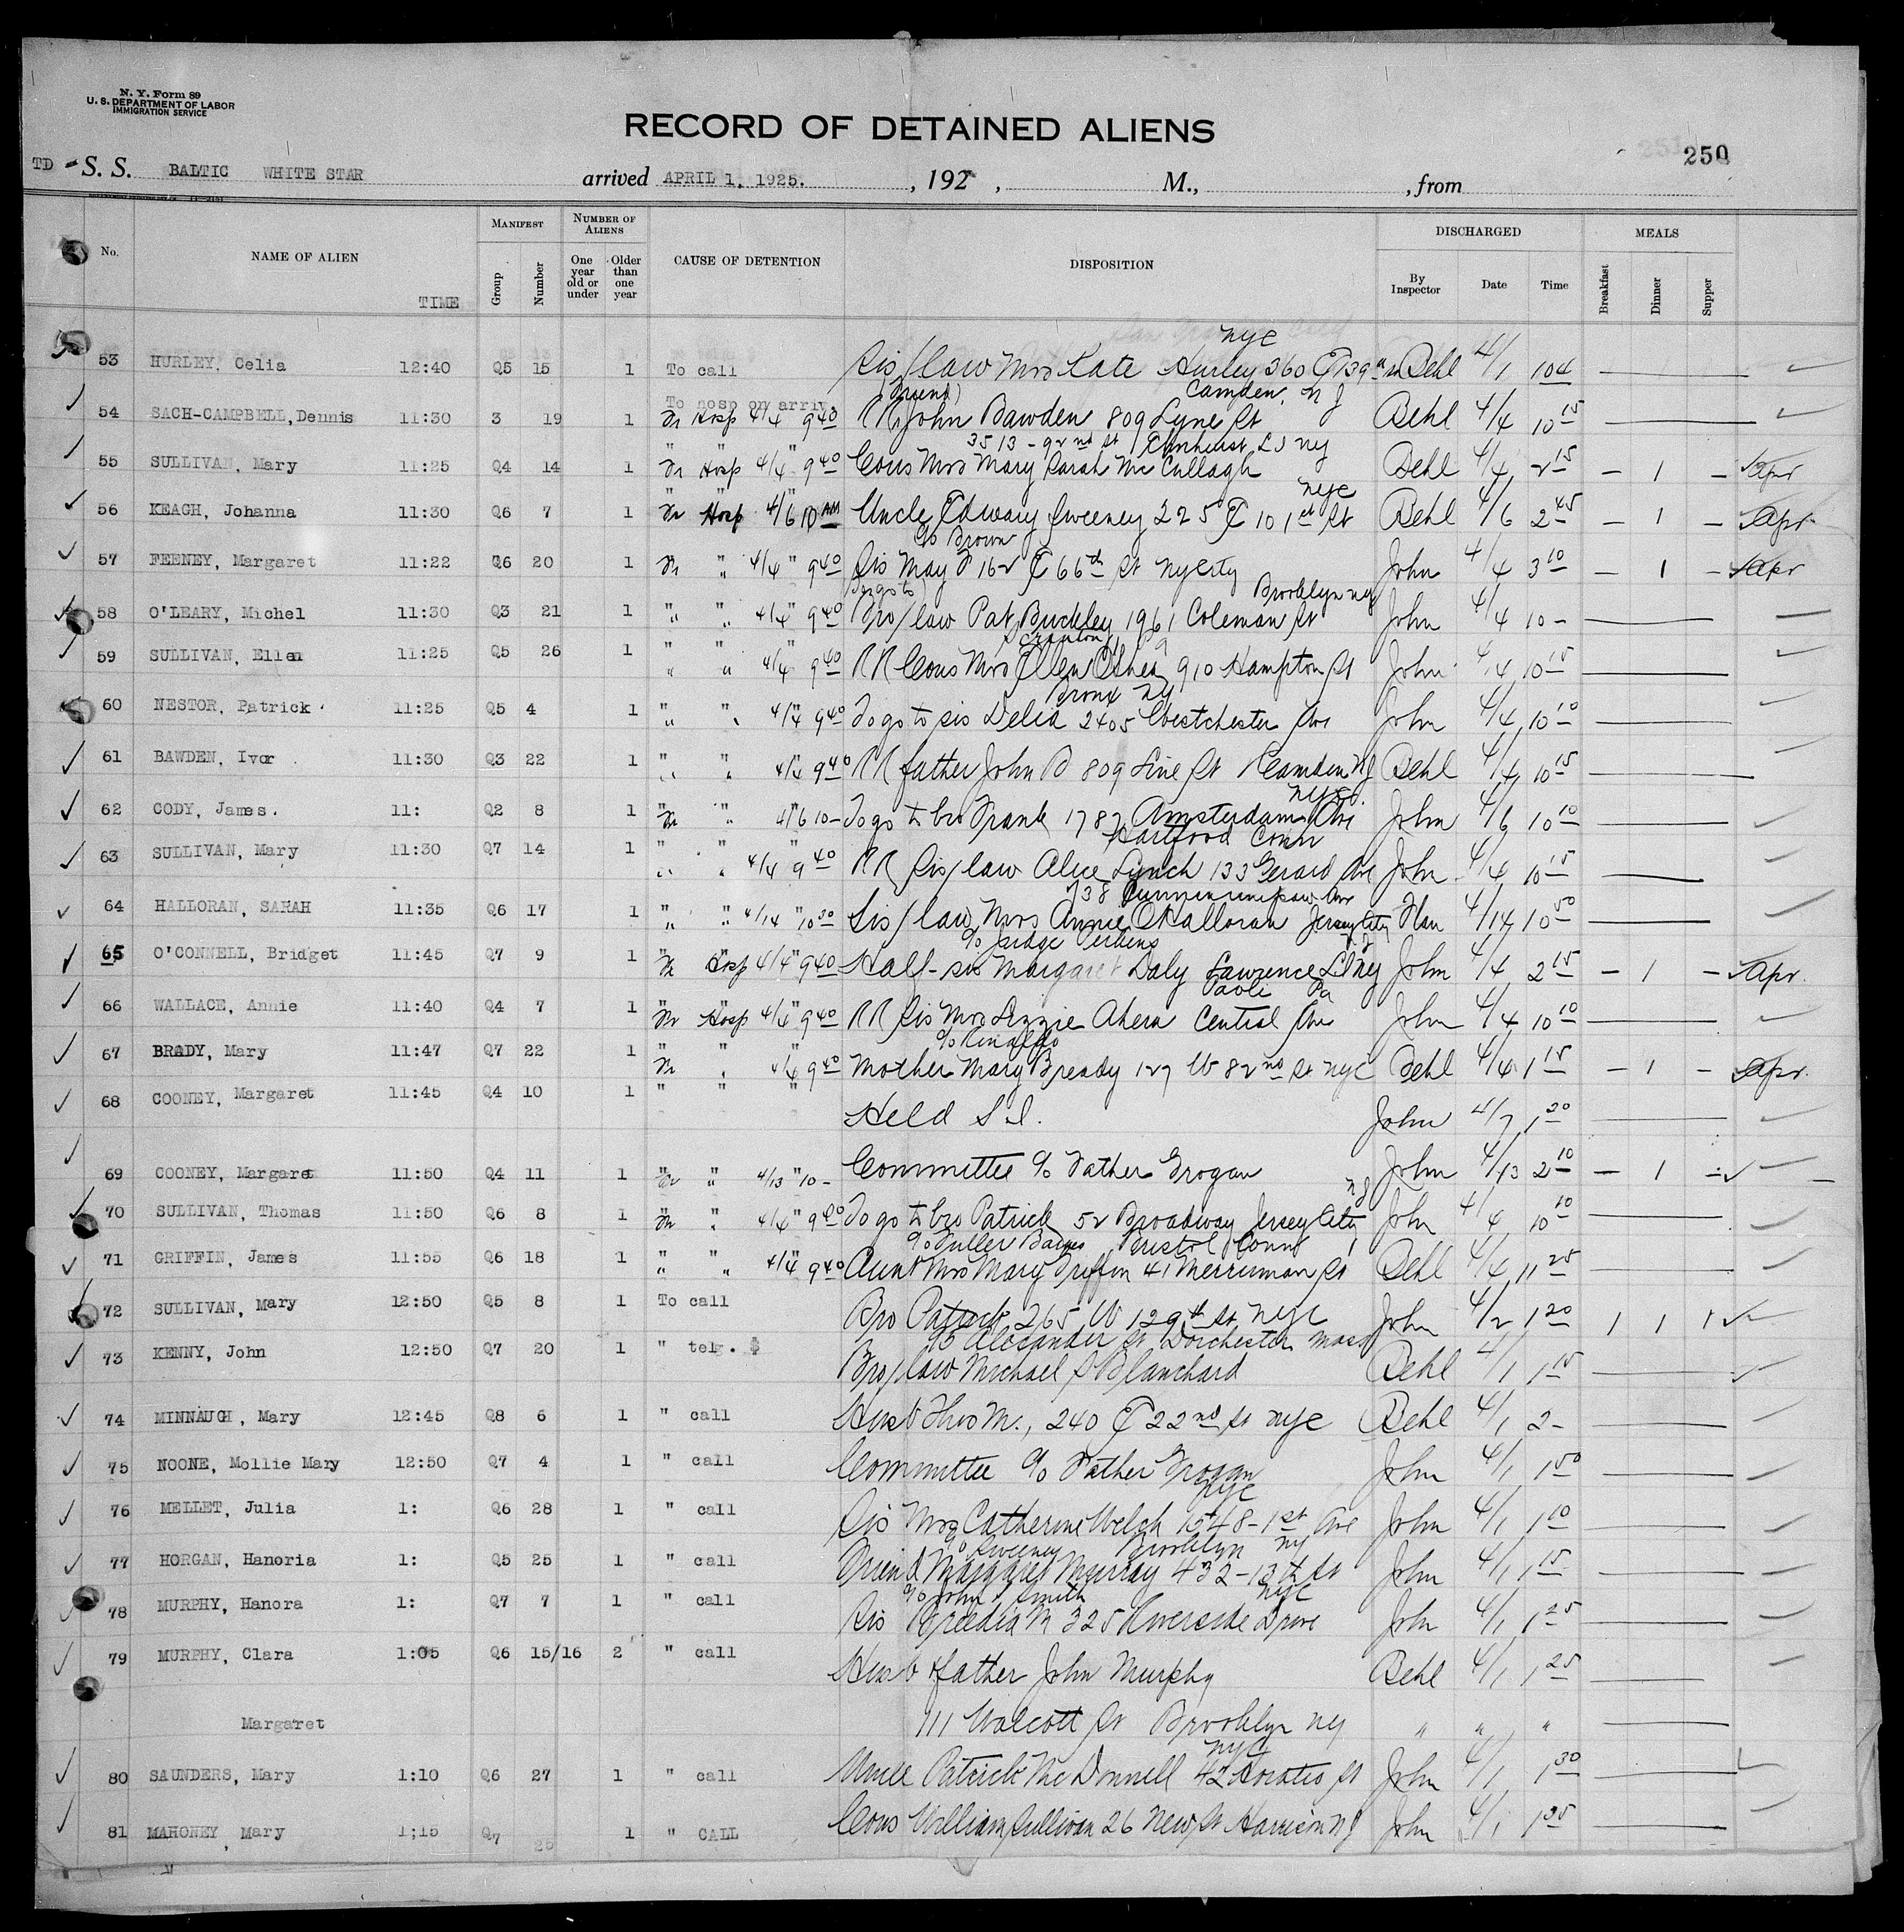 N. Y. Form 89
U. S. DEPARTMENT OF LABOR
IMMIGRATION SERVICE
RECORD OF DETAINED ALIENS
250
TD S. S. BALTIC WHITE STAR arrived APRIL 1, 1925. , 192 , M., , from
No. NAME OF ALIEN TIME MANIFEST Group Number NUMBER OF ALIENS One year old or under Older than one year CAUSE OF DETENTION DISPOSITION DISCHARGED By Inspector Date Time MEALS Breakfast Dinner Supper
nyc
53 HURLEY, Celia 12:40 Q5 15 1 To call Sis/law Mrs Kate Hurley 360 E 139th Behl 4/1 104
To hosp on arriv. (Friend) Camden, N J
54 SACH-CAMPBELL, Dennis 11:30 3 19 1 Fr Hosp 4/4 9 40 RR John Bawden 809 Lyne St Behl 4/4 10 15
" " " 3513 - 92nd St Elmhurst L I ny
55 SULLIVAN, Mary 11:25 Q4 14 1 Fr Hosp 4/4 9 40 Cous Mrs Mary Sarah McCullagh Behl 4/4 2 15 — 1 — Apr
" " " nyc
56 KEAGH, Johanna 11:30 Q6 7 1 Fr Hosp 4/6 10 AM Uncle Edward Sweeney 225 E 101st St Behl 4/6 2 45 — 1 — Apr
c/o Brown
57 FEENEY, Margaret 11:22 Q6 20 1 Fr " 4/4 9 40 Sis May F 162 E 66th St NyCity John 4/4 3 10 — 1 — Apr
(to go to) Brooklyn ny
58 O'LEARY, Michel 11:30 Q3 21 1 " " 4/4 9 40 Bro/law Pat Buckley 1961 Coleman St John 4/4 10 -
Scranton Pa
59 SULLIVAN, Ellen 11:25 Q5 26 1 " " 4/4 9 40 RR Cous Mrs Ellen OShea 910 Hampton St John 4/4 10 15
Bronx ny
60 NESTOR, Patrick 11:25 Q5 4 1 " " 4/4 9 40 To go to sis Delia 2405 Westchester Ave John 4/4 10 10
61 BAWDEN, Ivor 11:30 Q3 22 1 " " 4/4 9 40 RR father John B 809 Line St Camden NJ Behl 4/4 10 15
nyc
62 CODY, James. 11: Q2 8 1 Fr " 4/6 10 - To go to bro Frank 1787 Amsterdam Ave John 4/6 10 10
Hartford Conn
63 SULLIVAN, Mary 11:30 Q7 14 1 " " 4/4 9 40 RR Sis/law Alice Lynch 133 Gerard Ave John 4/4 10 15
738
64 HALLORAN, SARAH 11:35 Q6 17 1 " " 4/14 10 30 Sis/law Mrs Annie OHalloran Jersey City Han 4/14 10 50
c/o Judge Perkins NJ
65 O'CONNELL, Bridget 11:45 Q7 9 1 Fr Hosp 4/4 9 40 Half-sis Margaret Daly Lawrence LI Ny John 4/4 2 15 — 1 — Apr.
Paoli Pa
66 WALLACE, Annie 11:40 Q4 7 1 Fr Hosp 4/4 9 40 RR Sis Mrs Lizzie Ahern Central Ave John 4/4 10 10
c/o Rinaldo
67 BRADY, Mary 11:47 Q7 22 1 Fr " 4/4 9 40 Mother Mary Bready 127 W 82nd St nyc Behl 4/4 1 15 — 1 — Apr.
68 COONEY, Margaret 11:45 Q4 10 1 " " " Held S I. John 4/7 1 20
69 COONEY, Margaret 11:50 Q4 11 1 " " 4/13 10 - Committee c/o Father Grogan John 4/13 2 10 — 1 —
NJ
70 SULLIVAN, Thomas 11:50 Q6 8 1 Fr " 4/4 9 40 To go to bro Patrick 52 Broadway Jersey City John 4/4 10 10
c/o Fuller Barnes Bristol Conn
71 GRIFFIN, James 11:55 Q6 18 1 " " 4/4 9 40 Aunt Mrs Mary Griffin 41 Merriman St Behl 4/4 11 25
72 SULLIVAN, Mary 12:50 Q5 8 1 To call Bro Patrick 265 W 129th St NyC John 4/2 1 20 1 1 1
95 Alexander St Dorchester Mass
73 KENNY, John 12:50 Q7 20 1 " tel. $ Bro/law Michael S Blanchard Behl 4/1 1 15
74 MINNAUGH, Mary 12:45 Q8 6 1 " call Husb Thos M., 240 E 22nd St nyc Behl 4/1 2 -
75 NOONE, Mollie Mary 12:50 Q7 4 1 " call Committee c/o Father Grogan John 4/1 1 50
nyc
76 MELLET, Julia 1: Q6 28 1 " call Sis Mrs Catherine Welch 1548 - 1st Ave John 4/1 1 10
c/o Sweeney Brooklyn ny
77 HORGAN, Hanoria 1: Q5 25 1 " call Friend Margaret Murray 432 - 13th St John 4/1 1 15
c/o John J Smith nyc
78 MURPHY, Hanora 1: Q7 7 1 " call Sis Breedia M 325 Riverside Drive John 4/1 1 25
79 MURPHY, Clara 1:05 Q6 15/16 2 " call Husb & father John Murphy Behl 4/1 1 25
Margaret 111 Walcott St Brooklyn ny " " "
nyc
80 SAUNDERS, Mary 1:10 Q6 27 1 " call Uncle Patrick McDonnell 42 Horatio St John 4/1 1 30
81 MAHONEY, Mary 1;15 Q7 25 1 " CALL Cous William Sullivan 26 New St Harrison NJ John 4/1 1 35